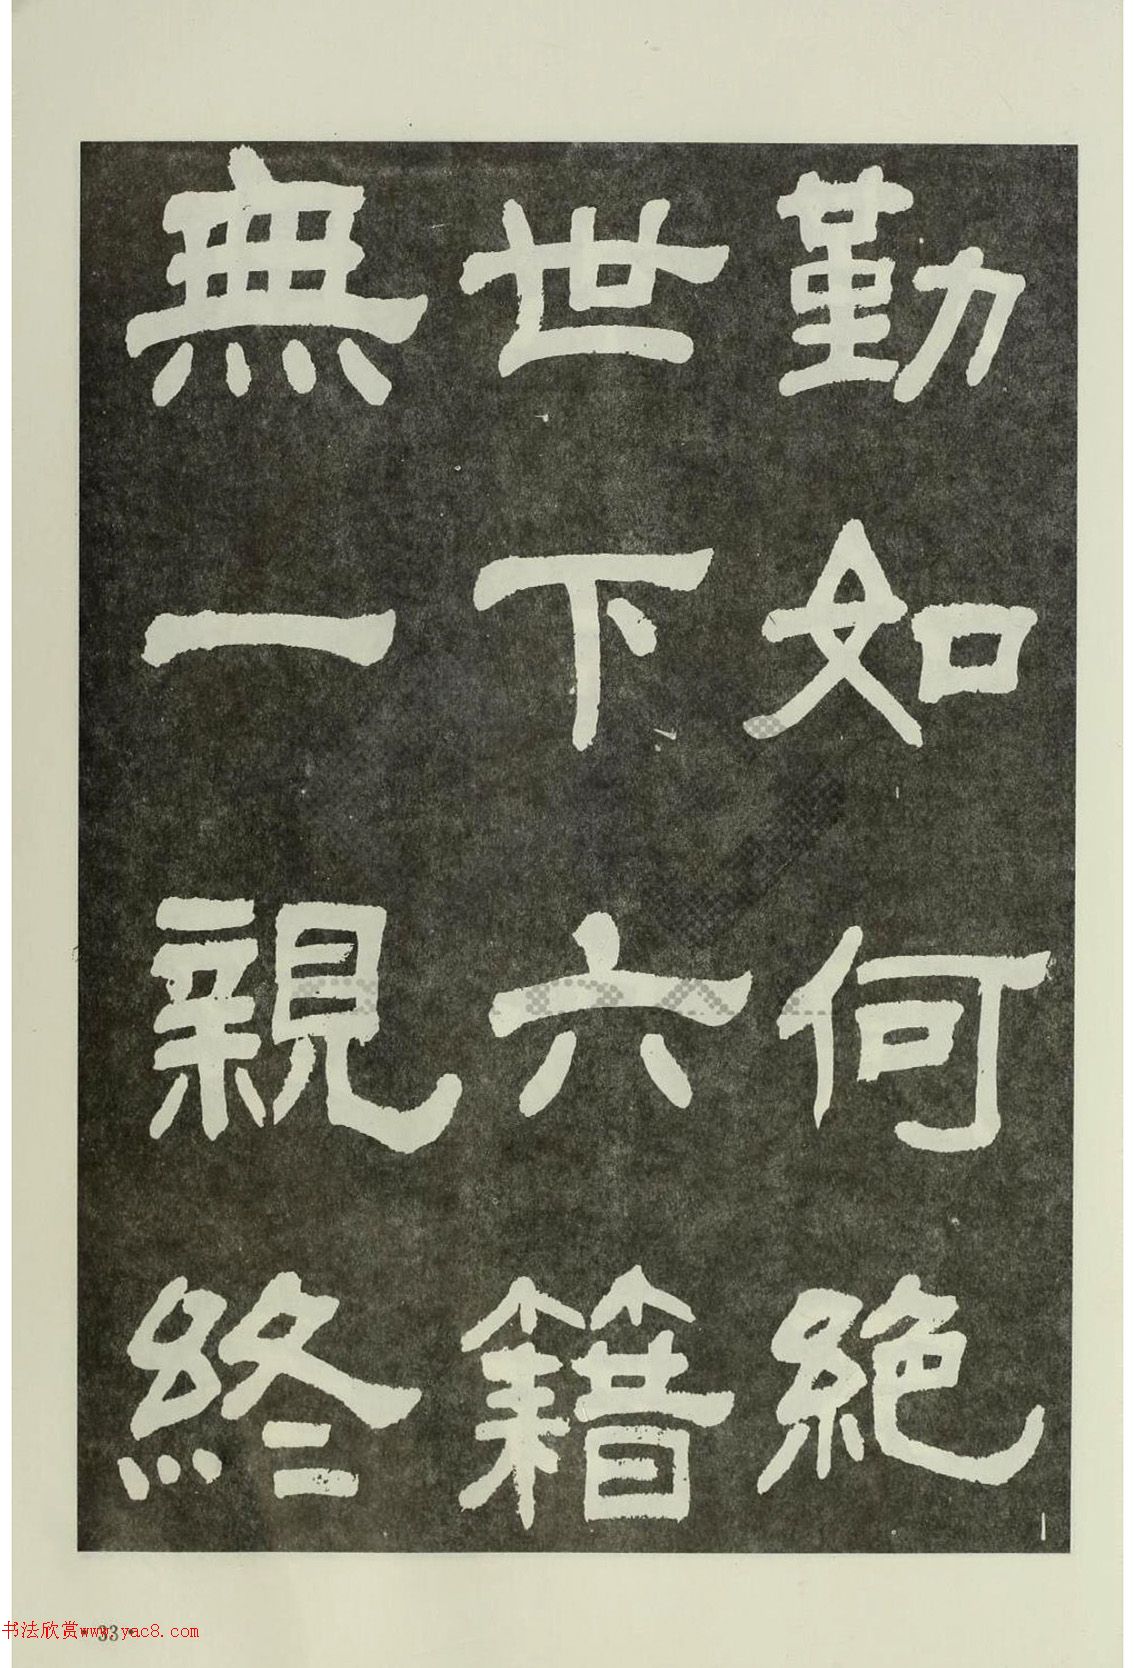 勤如何絶
世下六籍
無一親終
書法欣赏www.yac8.com
·33·